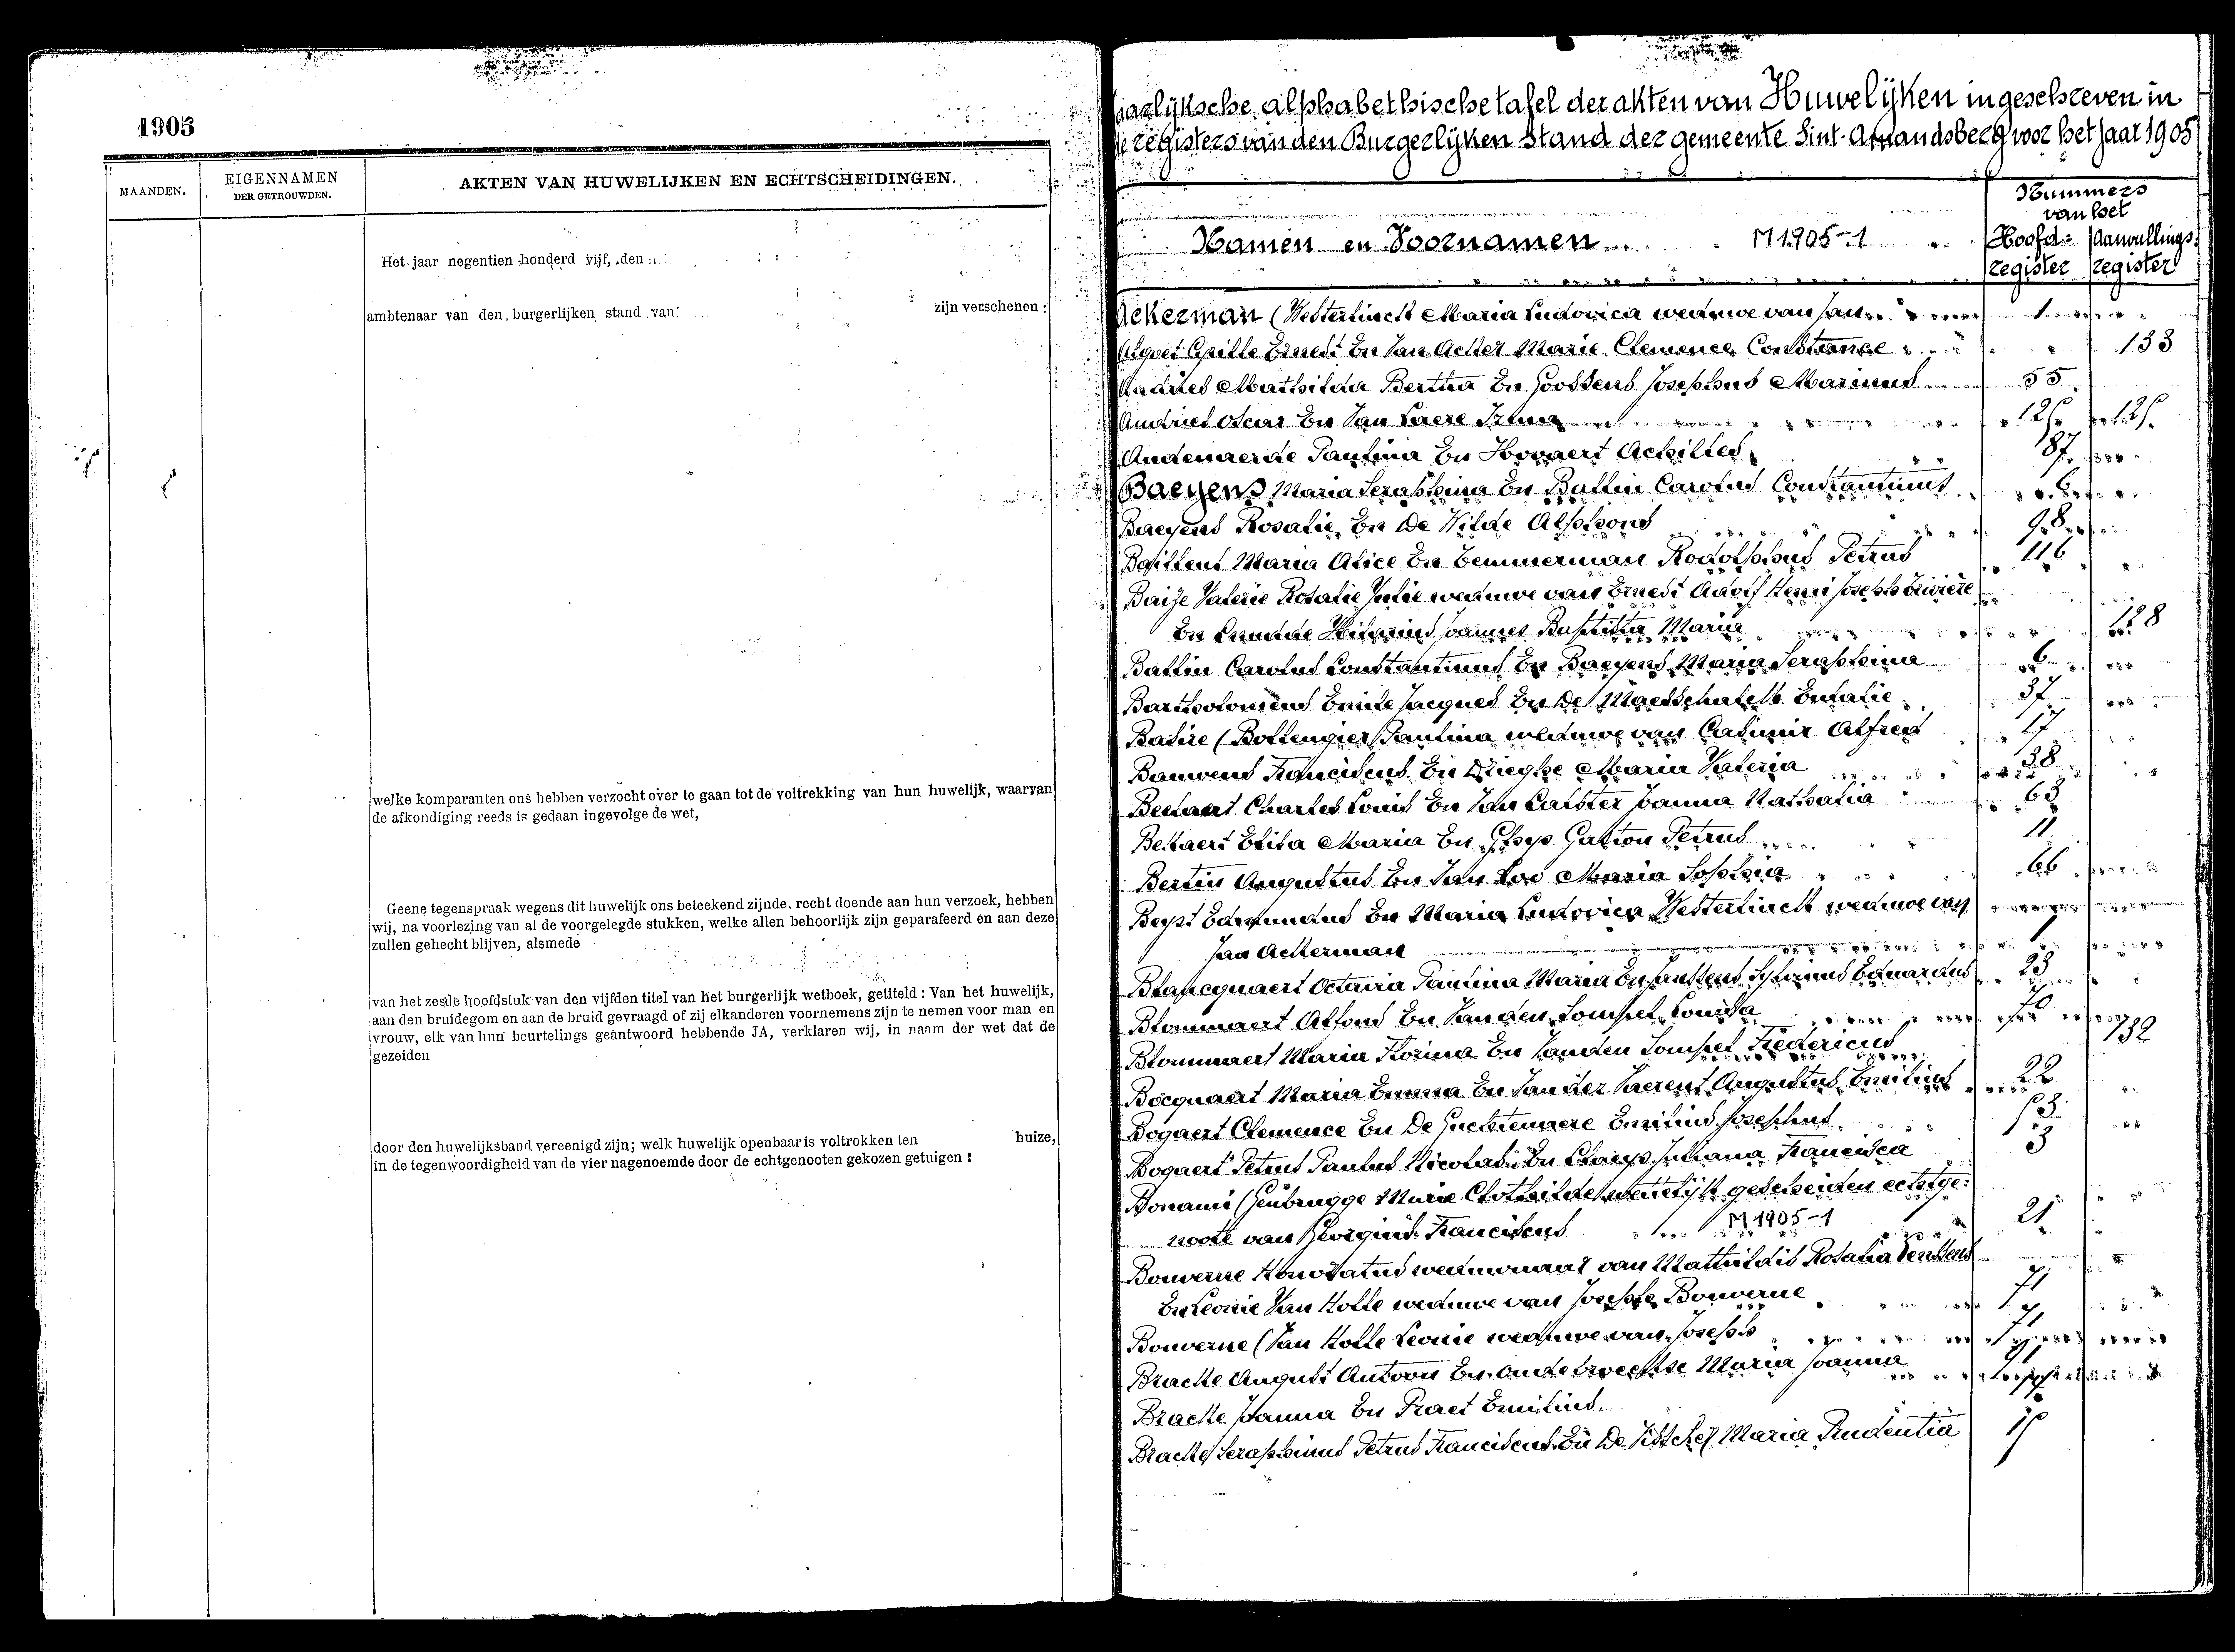 1905
MAANDEN.
EIGENNAMEN
DER GETROUWDEN.
AKTEN VAN HUWELIJKEN EN ECHTSCHEIDINGEN.
Het jaar negentien honderd vijf, den
ambtenaar van den burgerlijken stand van
zijn verschenen :
welke komparanten ons hebben verzocht over te gaan tot de voltrekking van hun huwelijk, waarvan
de afkondiging reeds is gedaan ingevolge de wet,
Geene tegenspraak wegens dit huwelijk ons beteekend zijnde, recht doende aan hun verzoek, hebben
wij, na voorlezing van al de voorgelegde stukken, welke allen behoorlijk zijn geparafeerd en aan deze
zullen gehecht blijven, alsmede
van het zesde hoofdstuk van den vijfden titel van het burgerlijk wetboek, getiteld : Van het huwelijk,
aan den bruidegom en aan de bruid gevraagd of zij elkanderen voornemens zijn te nemen voor man en
vrouw, elk van hun beurtelings geantwoord hebbende JA, verklaren wij, in naam der wet dat de
gezeiden
door den huwelijksband vereenigd zijn; welk huwelijk openbaar is voltrokken ten huize,
in de tegenwoordigheid van de vier nagenoemde door de echtgenooten gekozen getuigen :
aarlijksche alphabethische tafel der akten van Huwelijken ingeschreven in
de registers van den Burgerlijken Stand der gemeente Sint-Amandsberg voor het jaar 1905
Namen en Voornamen M1905-1
Nummers
van het
Hoofd= register
Aanvullings= register
Ackerman (Westerlinck Maria Ludovica weduwe van Jan 1
Cyrille Ernest En Van Acker Marie Clemence Constance 133
Andries Mathilda Bertha En Goossens Josephus Marinus 55
Andries Oscar En Van Laere Irma 125 125
Audenaerde Paulina En Hovaert Achilles 87
Baeyens Maria Seraphina En Ballin Carolus Constantinus 6
Baeyens Rosalie En De Wilde Alphons 98
Maria Alice En Temmerman Rodolphus Petrus 116
Valerie Rosalie Julie weduwe van Ernest Adolf Henri Joseph
En Hilarius Joannes Baptista Maria 128
Ballin Carolus Constantinus En Baeyens Maria Seraphina 6
Bartholomeus Emile Jacques En De Maesschalck Eulalie 37
Batsire (Bottengier Paulina weduwe van Casimir Alfred 17
Bauwens Franciscus En Drieghe Maria Valeria 38
Bekaert Charles Louis En Van Caister Joanna Nathalia 63
Bekaert Elisa Maria En Ghys Gaston Petrus 11
Bertin Augustus En Van Loo Maria Sophia 66
Beyst Edmundus En Maria Ludovica Westerlinck weduwe van
Jan Ackerman 1
Blancquaert Octavia Paulina Maria En Janssens Sylvinus Eduardus 23
Blommaert Alfons En Van den Sompel Louisa 70
Blommaert Maria Florina En Vanden Sompel Fredericus 132
Bocquaert Maria Emma En Van der Haerent Augustus Emilius 22
Bogaert Clemence En De Guchtenaere Emilius Josephus 53
Bogaert Petrus Paulus Nicolas En Claeys Juliana Francisca 3
Bonami (Genbrugge Marie Clothilde wettelijk gescheiden echtge=
noote van Georgius Franciscus M1905-1 21
Bouverne Honoratus weduwnaar van Mathildis Rosalia
En Leonie Van Holle weduwe van Joseph Bouverne 71
Bouverne (Van Holle Leonie weduwe van Joseph 71
Bracke August Antoon En Maria Joanna 91
Bracke Joanna En Praet Emilius
Bracke Seraphinus Petrus Franciscus En De Visscher Maria Prudentia